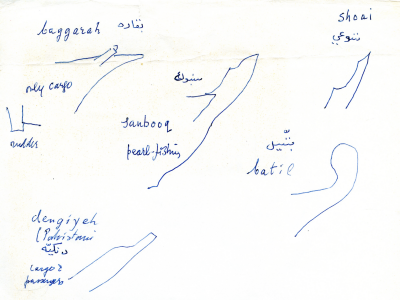 baggarah بقاره
only cargo
rudder
سنبوك
sanbooq
pearl-fishing
shoai
شوعي
بتّيل
batil
dengiyeh
(Pakistani
دنكيّه
cargo &
passengers